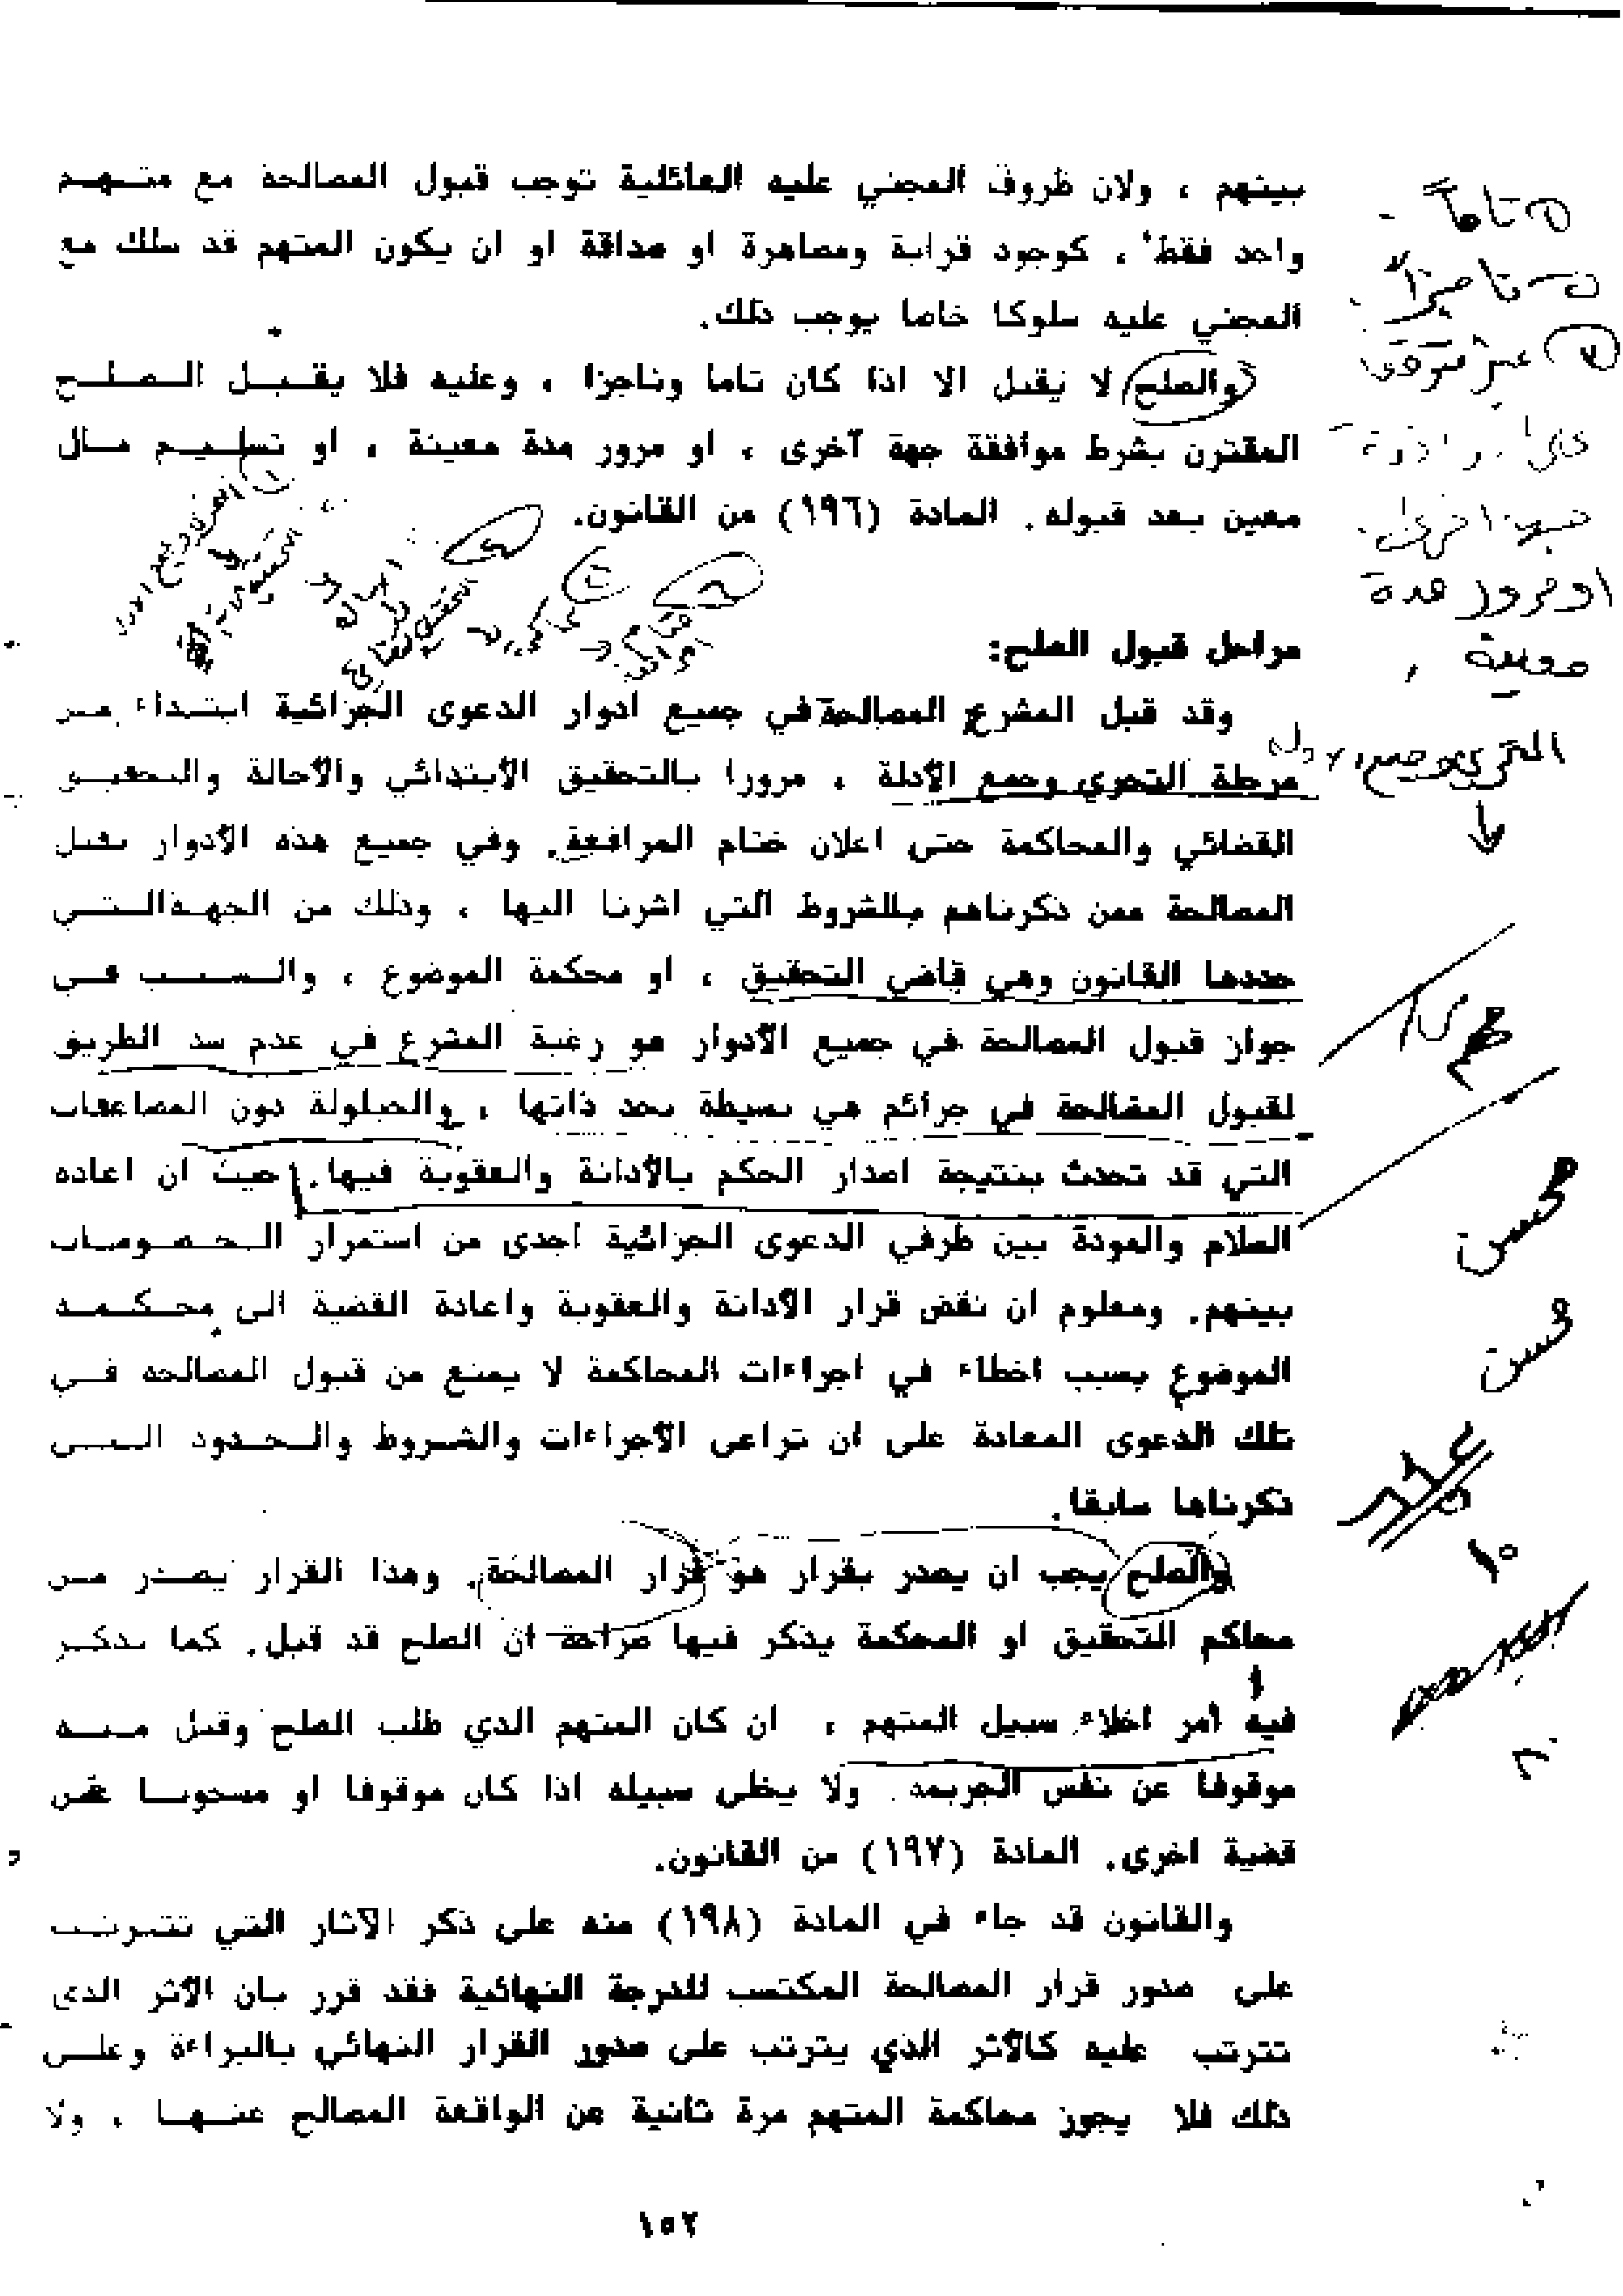 بينهم ، ولان ظروف المجني عليه العائلية توجب قبول المصالحة مع متهم
واحد فقط ، كوجود قرابة ومصاهرة او صداقة او ان يكون المتهم قد سلك مع
المجني عليه سلوكا خاصا يوجب ذلك.
والصلح لا يقبل الا اذا كان تاما وناجزا ، وعليه فلا يقبل الصلح
المقترن بشرط موافقة جهة آخرى ، او مرور مدة معينة ، او تسليم مال
معين بعد قبوله. المادة (١٩٦) من القانون.
مراحل قبول الصلح:
وقد قبل المشرع المصالحة في جميع ادوار الدعوى الجزائية ابتداء من
مرحلة التحري وجمع الأدلة ، مرورا بالتحقيق الأبتدائي والأحالة والتحقيق
القضائي والمحاكمة حتى اعلان ختام المرافعة. وفي جميع هذه الأدوار تقبل
المصالحة ممن ذكرناهم بالشروط التي اشرنا اليها ، وذلك من الجهة التي
حددها القانون وهي قاضي التحقيق ، او محكمة الموضوع ، والسبب في
جواز قبول المصالحة في جميع الأدوار هو رغبة المشرع في عدم سد الطريق
لقبول المصالحة في جرائم هي بسيطة بحد ذاتها ، والحيلولة دون المضاعفات
التي قد تحدث بنتيجة اصدار الحكم بالأدانة والعقوبة فيها. حيث ان اعاده
السلام والمودة بين طرفي الدعوى الجزائية اجدى من استمرار الخصومات
بينهم. ومعلوم ان نقض قرار الأدانة والعقوبة واعادة القضية الى محكمة
الموضوع بسبب اخطاء في اجراءات المحاكمة لا يمنع من قبول المصالحه في
تلك الدعوى المعادة على ان تراعى الأجراءات والشروط والحدود التي
ذكرناها سابقا.
والصلح يجب ان يصدر بقرار هو قرار المصالحة. وهذا القرار يصدر من
محاكم التحقيق او المحكمة يذكر فيها صراحة ان الصلح قد قبل. كما يذكر
فيه امر اخلاء سبيل المتهم ، ان كان المتهم الذي طلب الصلح وقبل منه
موقوفا عن نفس الجريمة. ولا يخلى سبيله اذا كان موقوفا او مسجونا عن
قضية اخرى. المادة (١٩٧) من القانون.
والقانون قد جاء في المادة (١٩٨) منه على ذكر الآثار التي تترتب
على صدور قرار المصالحة المكتسب للدرجة النهائية فقد قرر بان الأثر الذي
تترتب عليه كالأثر الذي يترتب على صدور القرار النهائي بالبراءة وعلى
ذلك فلا يجوز محاكمة المتهم مرة ثانية عن الواقعة المصالح عنها ، ولا
١٥٢
تاماً
او مرور مدة
معينة
محسن
محسن